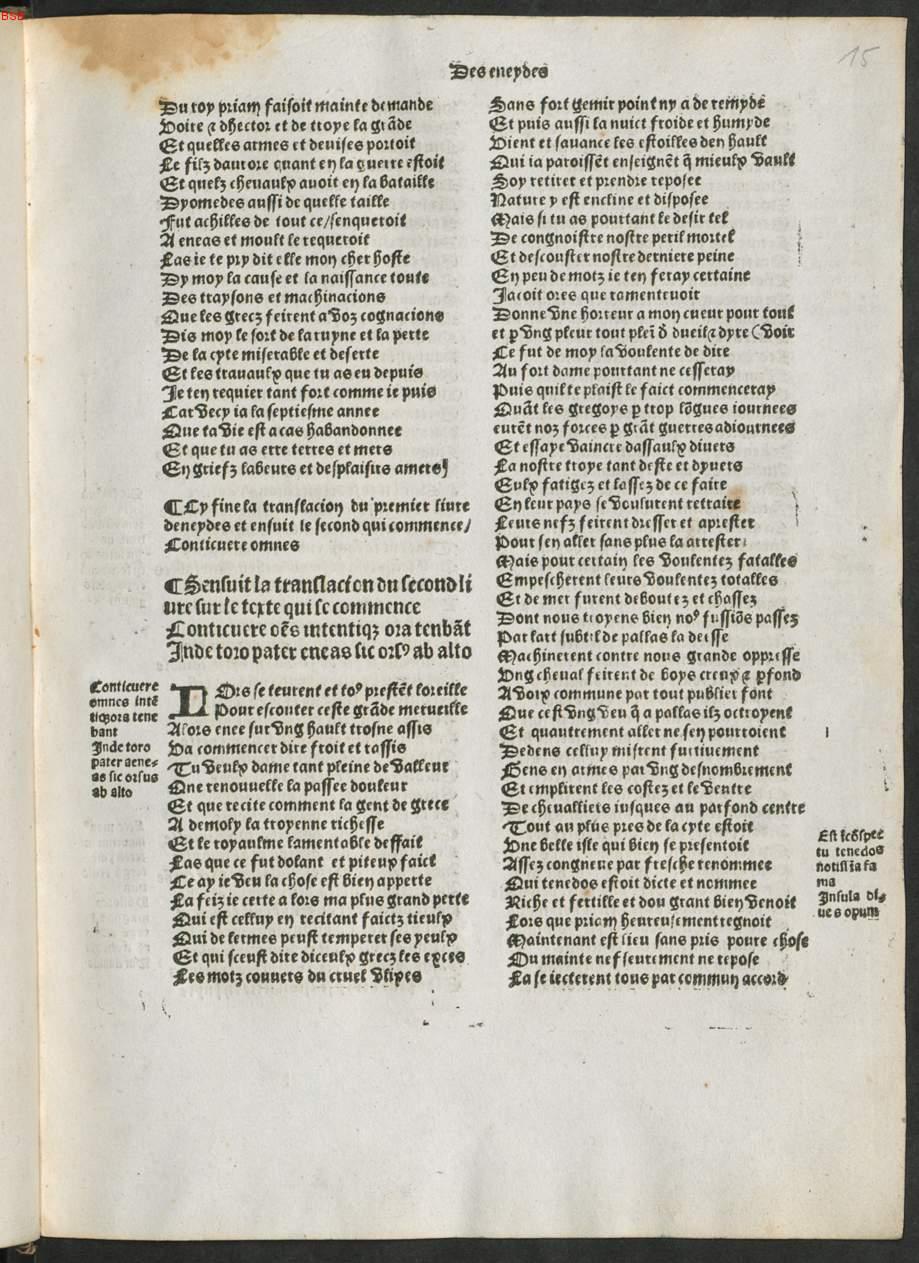 BSB
15
Des eneydes
Du roy priam faisoit mainte demande
Voire ⁊ dhector et de troye la grãde
Et quelles armes et deuises portoit
Le filz daurore quant en la guerre estoit
Et quelz cheuaulx auoit en la bataille
Dyomedes aussi de quelle taille
Fut achilles de tout ce/senqueroit
A eneas et moult le requeroit
Las ie te pry dit elle mon cher hoste
Dy moy la cause et la naissance toute
Des traysons et machinacions
Que les grecz feirent a voz cognacions
Dis moy le sort de la ruyne et la perte
De la cyte miserable et deserte
Et les trauaulx que tu as eu depuis
Je ten requier tant fort comme ie puis
Car vecy ia la septiesme annee
Que ta vie est a cas habandonnee
Et que tu as erre terres et mers
En griefz labeurs et desplaisirs amers
¶Cy fine la translacion du premier liure
deneydes et ensuit le second qui commence/
Conticuere omnes
¶Sensuit la translacion du second li
ure sur le texte qui se commence
Conticuere oẽs intentiqꝫ ora tenbãt
Inde toro pater eneas sic orsꝰ ab alto
Conticuere
omnes intẽ
tiqꝫora tene
bant
Inde toro
pater aene-
as sic orsus
ab alto
LOrs se teurent et toꝰ prestẽt loreille
Pour escouter ceste grãde merueille
Alors enee sur vng hault trosne assis
Va commencer dire froit et rassis
Tu veulx dame tant pleine de valleur
Que renouuelle la passee douleur
Et que recite comment la gent de grece
A demoly la troyenne richesse
Et le royaulme lamentable deffait
Las que ce fut dolant et piteux faict
Ce ay ie veu la chose est bien apperte
La feiz ie certe a lors ma plus grand perte
Qui est celluy en recitant faictz tieulx
Qui de lermes peust temperer ses yeulx
Et qui sceust dire diceulx grecz les exces
Les motz couuers du cruel vlixes
Sans fort gemir point ny a de remyde
Et puis aussi la nuict froide et humyde
Vient et sauance les estoilles den hault
Qui ia paroissẽt enseignẽt q̃ mieulx vault
Soy retirer et prendre reposee
Nature y est encline et disposee
Mais si tu as pourtant le desir tel
De congnoistre nostre peril mortel
Et descouster nostre derniere peine
En peu de motz ie ten feray certaine
Jacoit ores que ramenteuoir
Donne vne horreur a mon cueur pour tout
et ꝑ vng pleur tout pleĩ d̃ dueil⁊ dyre (voir
Ce fut de moy la voulente de dire
Au fort dame pourtant ne cesseray
Puis quil te plaist le faict commenceray
Quãt les gregoys ꝑ trop lõgues iournees
eurẽt noz forces ꝑ grãt guerres adiournees
Et essaye vaincre dassaulx diuers
La nostre troye tant deste et dyuers
Eulx fatigez et lassez de ce faire
En leur pays se voulurent retraire
Leurs nefz feirent dresser et aprester
Pour sen aller sans plus la arrester
Mais pour certain les voulentez fatalles
Empescherent leurs voulentez totalles
Et de mer furent deboutez et chassez
Dont nous troyens bien noꝰ fussiõs passez
Par lart subtil de pallas la deesse
Machinerent contre nous grande oppresse
Vng cheual feirent de boys creux ⁊ ꝑfond
A voix commune par tout publier font
Que cest vng veu q̃ a pallas ilz octroyent
Et quautrement aller ne sen pourroient
Dedens celluy mistrent furtiuement
Gens en armes par vng desnombrement
Et emplirent les costez et le ventre
De cheualliers iusques au parfond centre
Tout au plus pres de la cyte estoit
Vne belle isle qui bien se presentoit
Assez congneue par fresche renommee
Qui tenedos estoit dicte et nommee
Riche et fertille et dou grant bien venoit
Lors que priam heureusement regnoit
Maintenant est lieu sans pris poure chose
Ou mainte nef seurement ne repose
La se iecterent tous par commun accord
Est icõspec
tu tenedos
notissĩa fa
ma
Insula di-
ues opum